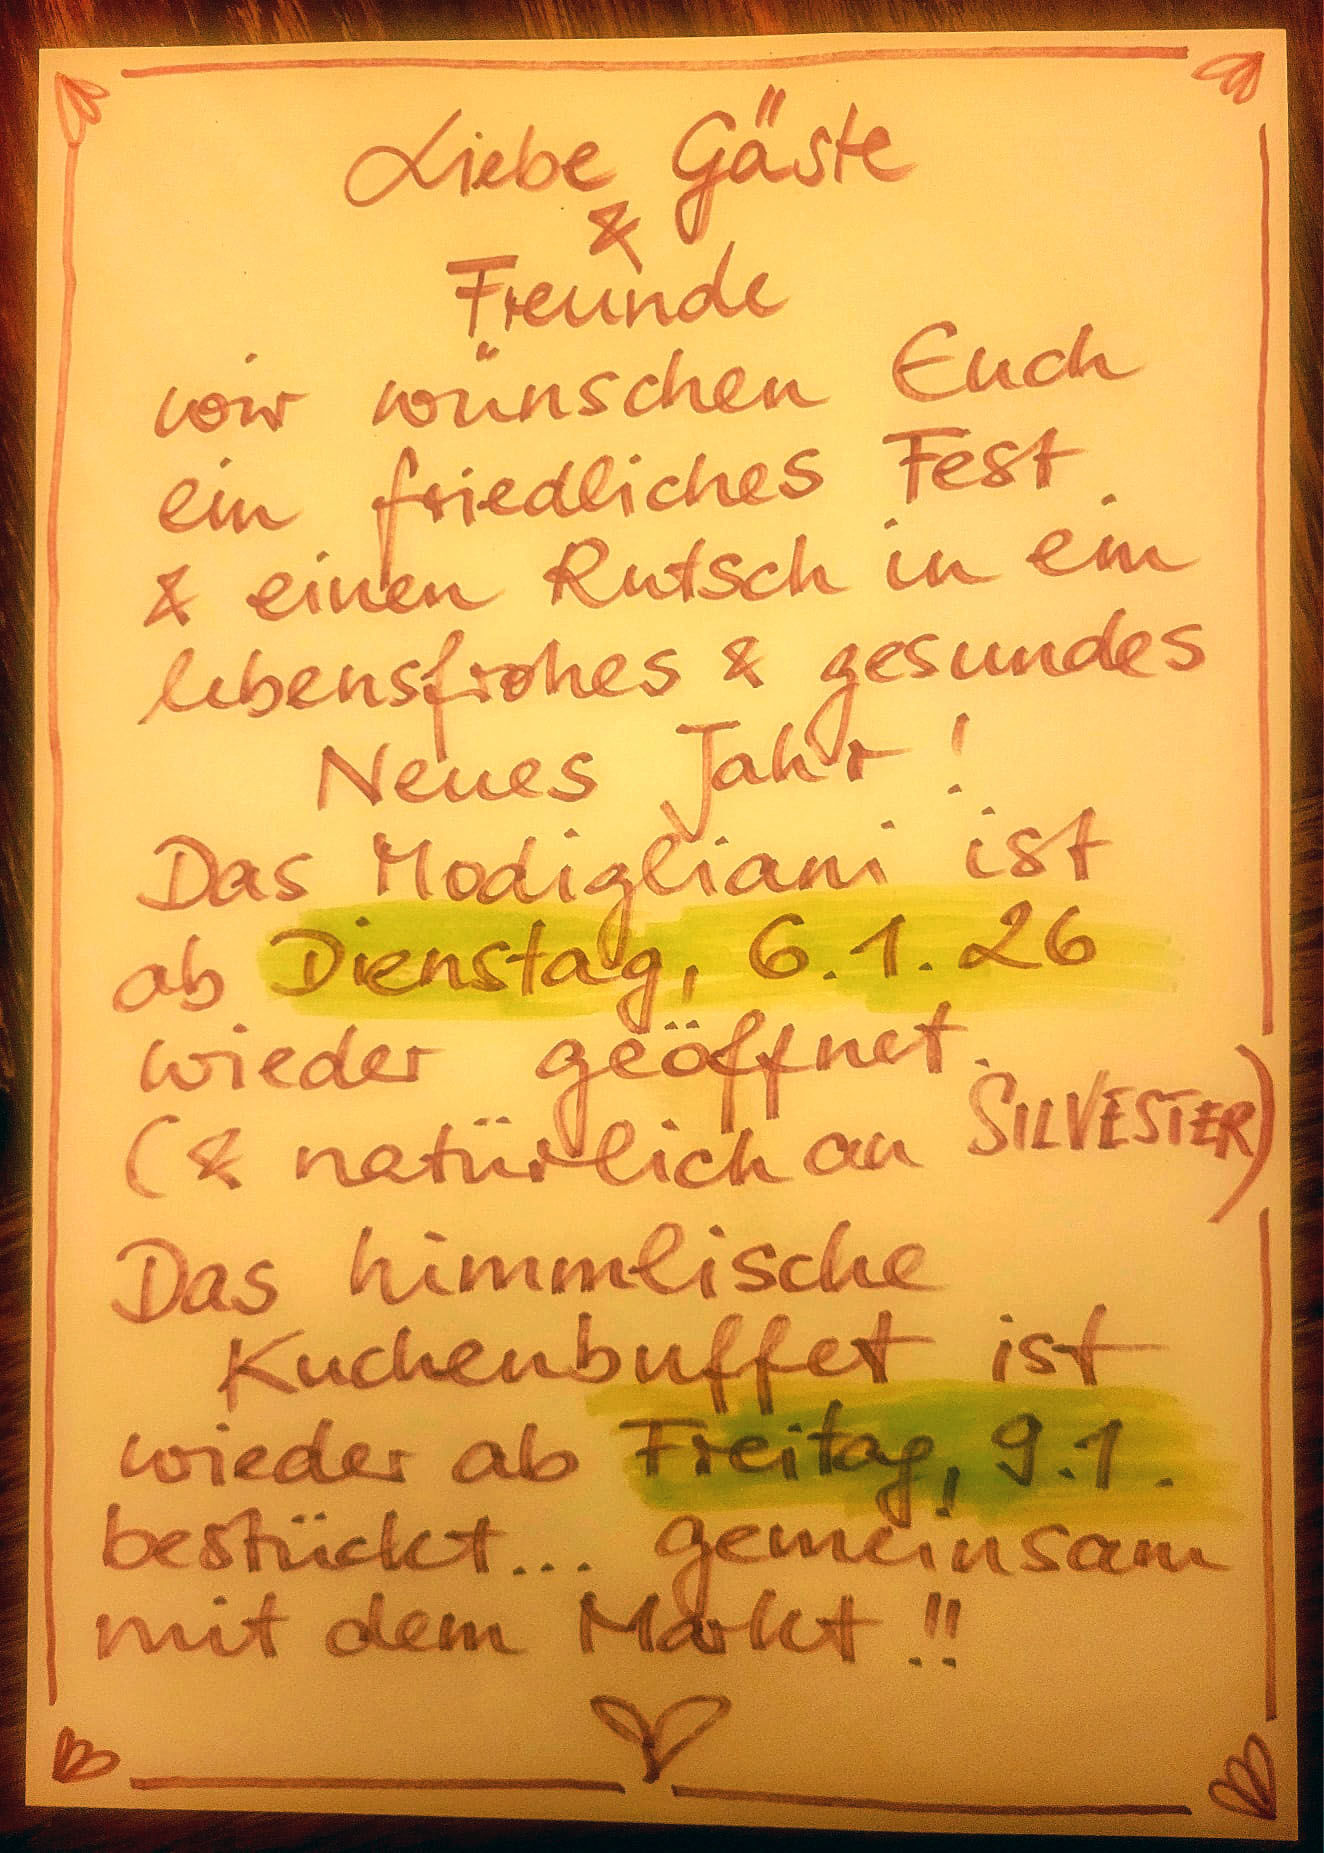 Liebe Gäste
&
Freunde
wir wünschen Euch
ein friedliches Fest
& einen Rutsch in ein
lebensfrohes & gesundes
Neues Jahr!
Das Modigliani ist
ab Dienstag, 6.1.26
wieder geöffnet.
(& natürlich an SILVESTER)
Das himmlische
Kuchenbuffet ist
wieder ab Freitag, 9.1.
bestückt... gemeinsam
mit dem Markt!!